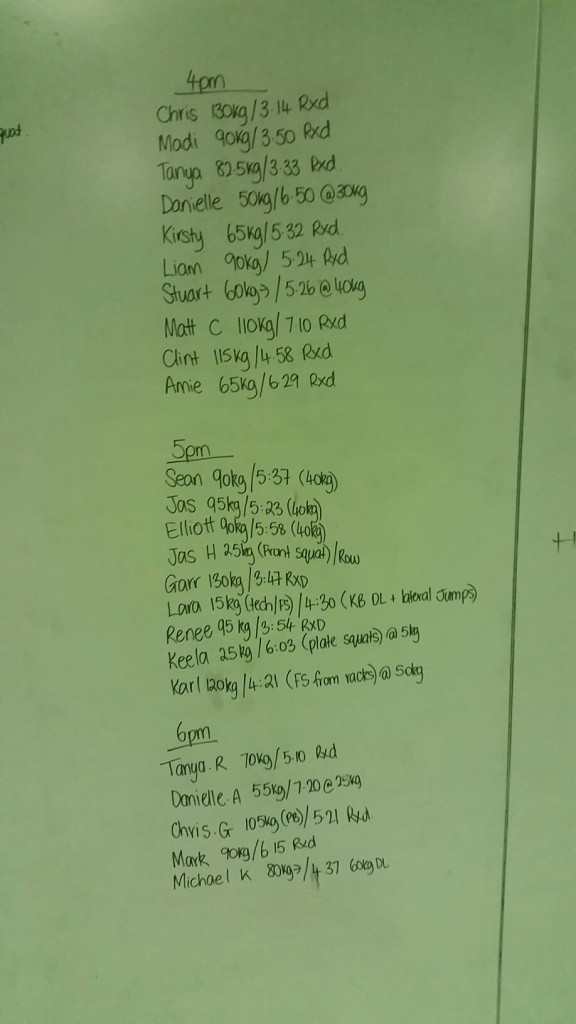 quat.
4pm
Chris 130kg/3.14 Rxd
Madi 90kg/3.50 Rxd
Tanya 82.5kg/3.33 Rxd.
Danielle 50kg/6.50 @30kg
Kirsty 65kg/5.32 Rxd.
Liam 90kg/ 5.24 Rxd
Stuart 60kg→/5.26 @ 40kg
Matt C 110kg/7.10 Rxd
Clint 115kg/4.58 Rxd
Amie 65kg/6.29 Rxd
5pm
Sean 90kg/5:37 (40kg)
Jas 95kg/5:23 (40kg)
Elliott 90kg/5:58 (40kg)
Jas H 25kg (Front Squat)/Row
Garr 130kg/3:47 RXD
Lara 15kg (tech/FS)/4:30 (KB DL + lateral Jumps)
Renee 95kg/3:54 RXD
Keela 25kg/6:03 (plate squats) @ 5kg
Karl 120kg/4:21 (FS from racks) @ 50kg
6pm
Tanya.R 70kg/5.10 Rxd
Danielle.A 55kg/7.20 @ 25kg
Chris.G 105kg (PB)/5.21 Rxd.
Mark 90kg/6 15 Rxd
Michael K 80kg→/4 37 60kg DL